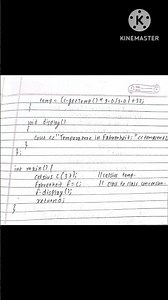 KINEMASTER
temp = (c.gettemp()* 9.0/5.0)+32;
}
void display()
{
cout << "Temperature in Fahrenheit: " <<
}
};
int main() {
celsius c(37); // celsius temp.
fahrenheit f = c; // class to class conversion
f.display();
return 0;
}